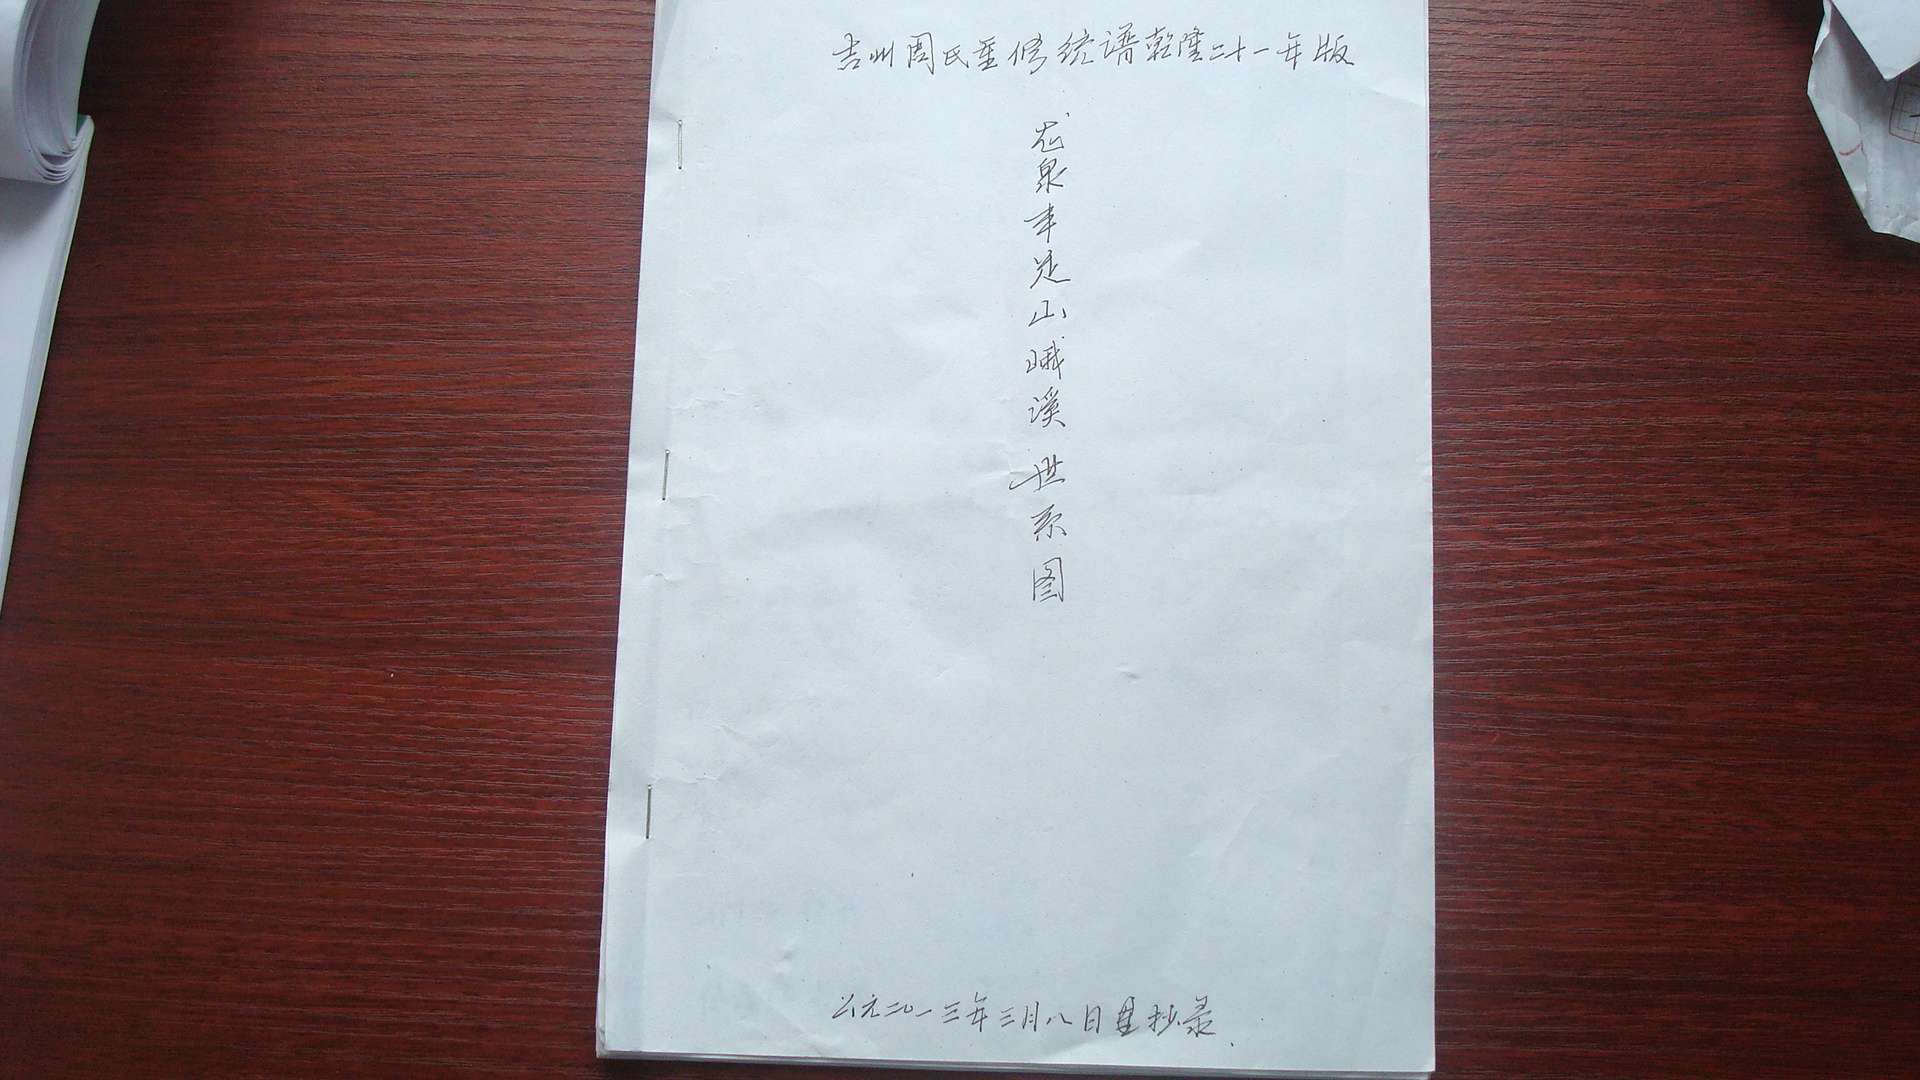 吉州周氏重修统谱乾隆二十一年版
龙泉丰足山峨溪 世系图
公元二〇一三年三月八日星抄录